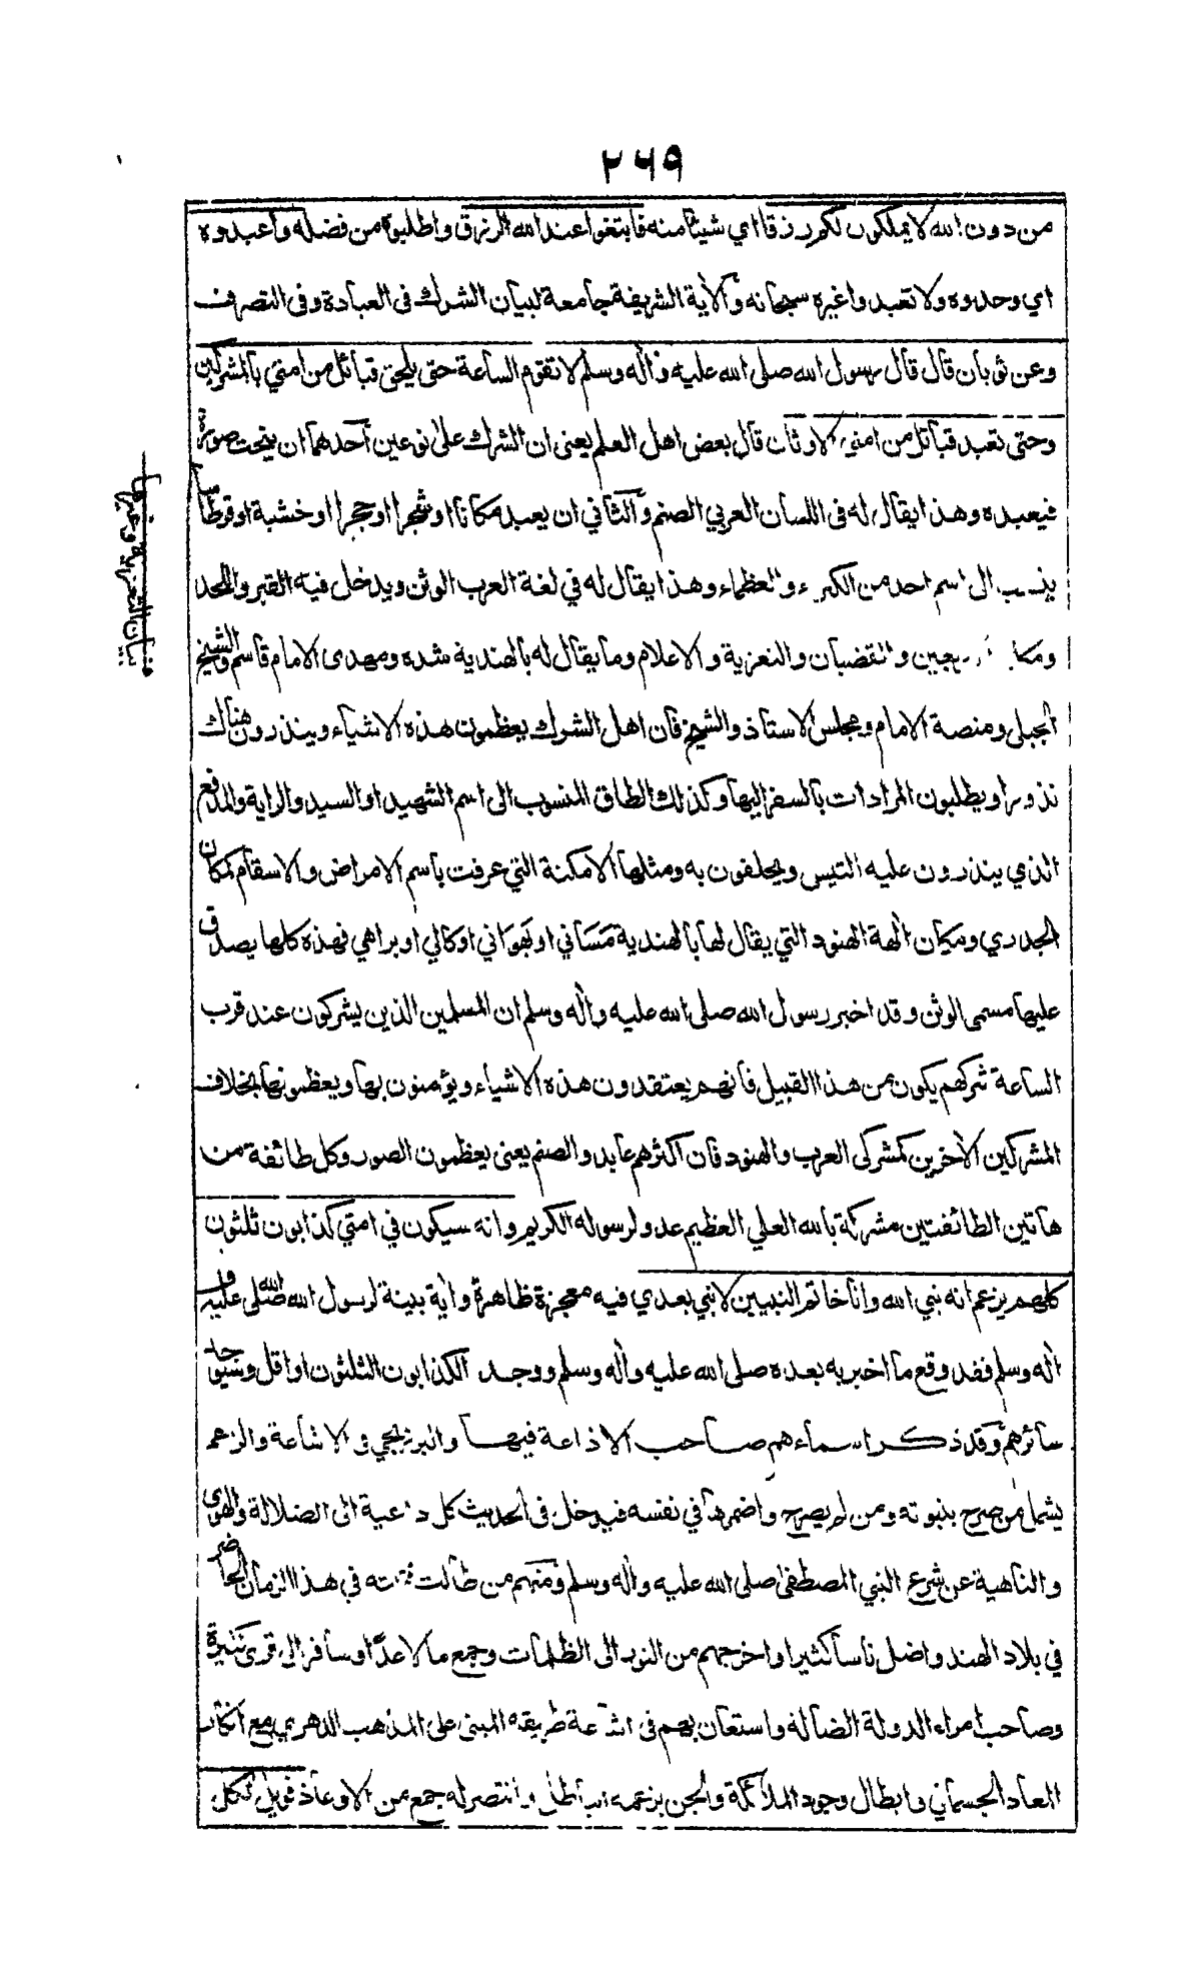 ٢٦٩
من دون الله لا يملكون لكم رزقا اي شيئا منه فابتغوا عند الله الرزق واطلبوه من فضله واعبدوه
اي وحدوه ولا تعبدوا غيره سبحانه والآية الشريفة جامعة لبيان الشرك فى العبادة وفى التصرف
وعن ثوبان قال قال رسول الله صلى الله عليه وأله وسلم لا تقوم الساعة حتى يلحق قبائل من امتي بالمشركين
وحتى تعبد قبائل من امتي الاوثان قال بعض اهل العلم يعنى ان الشرك على نوعين احدهما ان ينحت صورة
فيعبده وهذا يقال له فى اللسان العربي الصنم والثاني ان يعبد مكانا او شجرا او حجرا او خشبة او قرطاسا
ينسب الى اسم احد من الكبراء والعظماء وهذا يقال له في لغة العرب الوثن ويدخل فيه القبر واللحد
والقضبان والتعزية والاعلام وما يقال له بالهندية شده ومهدى الامام قاسم والشيخ
الجبلى ومنصة الامام ومجلس الاستاذ والشيخ فان اهل الشرك يعظمون هذه الاشياء وينذرون هناك
نذورا ويطلبون المرادات بالسفر اليها وكذلك الطاق المنسوب الى اسم الشهيد او السيد والراية والمدفع
الذي ينذرون عليه التيس ويحلفون به ومثلها الامكنة التي عرفت باسم الامراض والاسقام كمكان
الجدري ومكان ألهة الهنود التي يقال لها بالهندية مساني او بهواني او كالي او براهي فهذه كلها يصدق
عليها مسمى الوثن وقد اخبر رسول الله صلى الله عليه وأله وسلم ان المسلمين الذين يشركون عند قرب
الساعة شركهم يكون من هذا القبيل فانهم يعتقدون هذه الاشياء ويؤمنون بها ويعظمونها بخلاف
المشركين الأخرين كمشركى العرب والهنود فان اكثرهم عابدو الصنم يعنى يعظمون الصور وكل طائفة من
هاتين الطائفتين مشركة بالله العلي العظيم عدو لرسوله الكريم وانه سيكون في امتي كذابون ثلثون
كلهم يزعم انه نبي الله وانا خاتم النبيين لا نبي بعدي فيه معجزة ظاهرة وأية بينة لرسول الله صلى الله عليه و
أله وسلم فقد وقع ما اخبر به بعده صلى الله عليه وأله وسلم ووجد الكذابون الثلثون او اقل وسيوجد
سائرهم وقد ذكر اسماءهم صاحب الاذاعة فيها والبرزنجي في الاشاعة والزعم
يشمل من صرح بنبوته ومن لم يصرح واضمرها في نفسه فيدخل فى الحديث كل داعية الى الضلالة والهوى
والناهية عن شرع النبي المصطفى صلى الله عليه وأله وسلم ومنهم من طالت فتنته في هذا الزمان الحاضر
في بلاد الهند واضل ناسا كثيرا واخرجهم من النور الى الظلمات وجمع مالا عدا وسافر الى قرى كثيرة
وصاحب امراء الدولة الضالة واستعان بهم فى اشاعة طريقه المبنى على المذهب الدهري مع انكار
المعاد الجسماني وابطال وجود الملائكة والجن بزعمه وانتصر له جمع من الاوغاد فويل لكل
بيان التعزية وغيرها